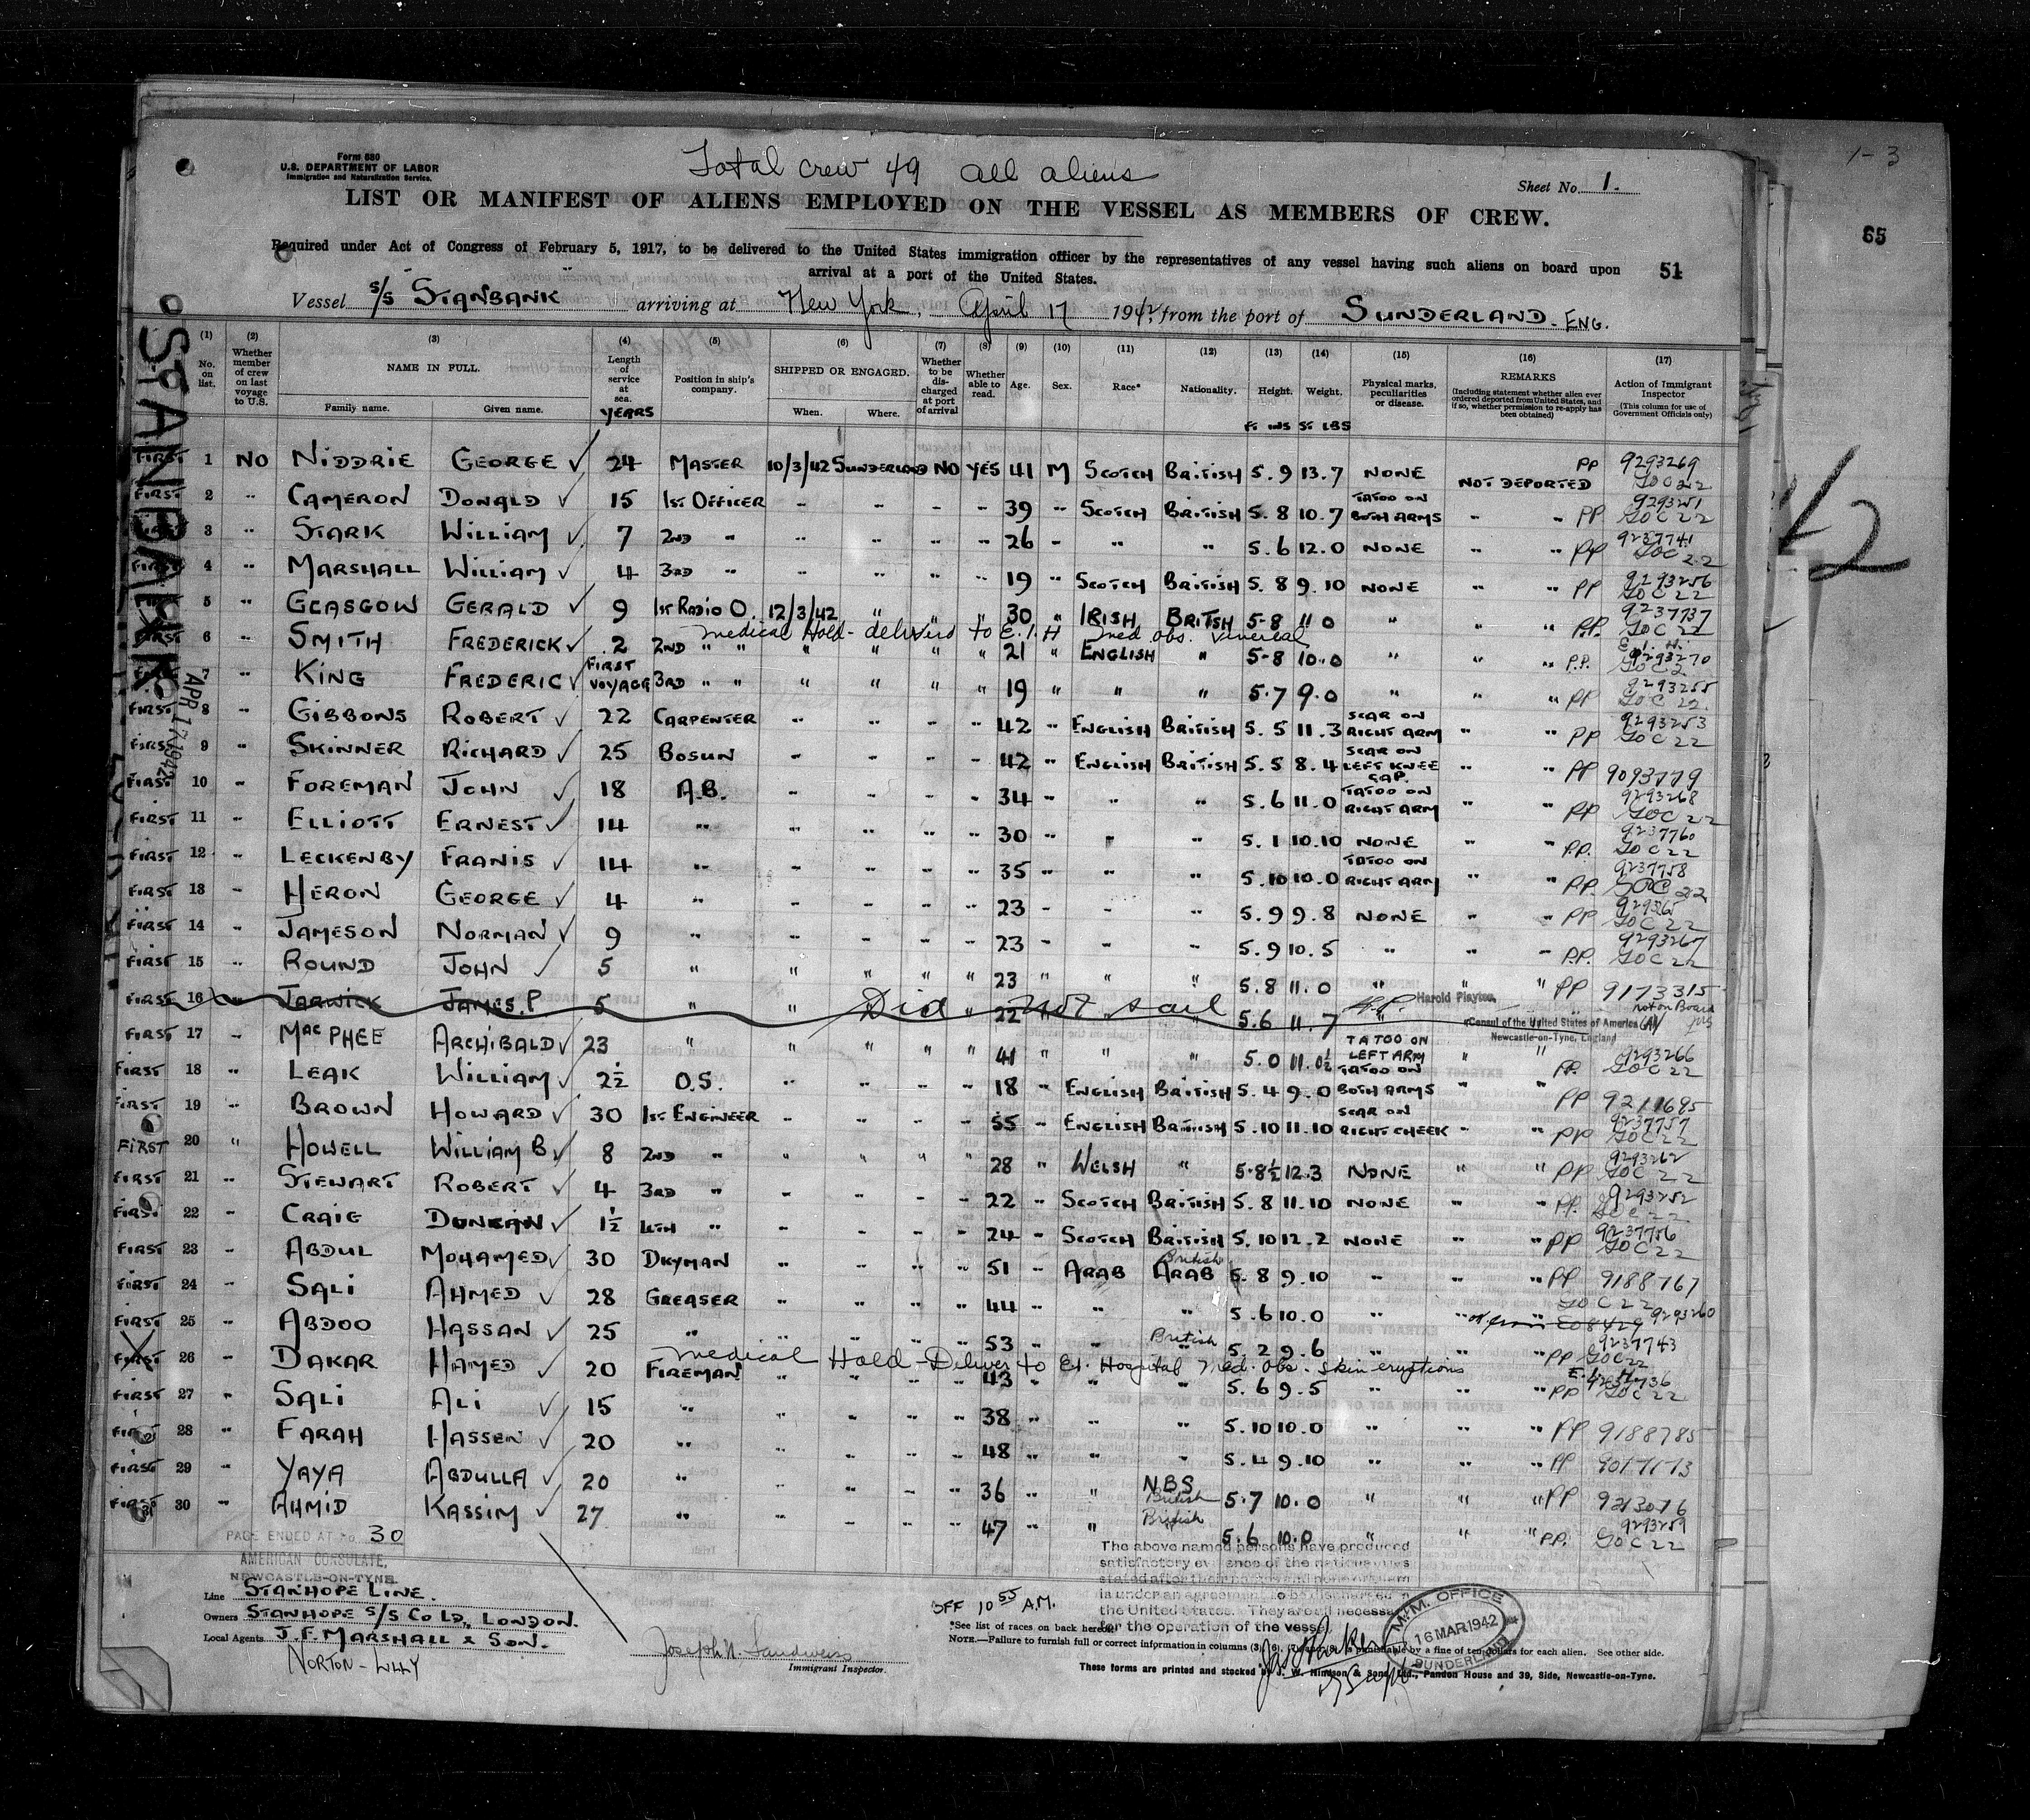 1-3
65
Form 680
U.S. DEPARTMENT OF LABOR
Immigration and Naturalization Service.
Total crew 49 all aliens
Sheet No. 1.
LIST OR MANIFEST OF ALIENS EMPLOYED ON THE VESSEL AS MEMBERS OF CREW.
Required under Act of Congress of February 5, 1917, to be delivered to the United States immigration officer by the representatives of any vessel having such aliens on board upon
arrival at a port of the United States.
51
Vessel S/S STANBANK arriving at New York, April 17 1942, from the port of SUNDERLAND - ENG.
STANBANK
APR 17 1942
(1) (2) (3) (4) (5) (6) (7) (8) (9) (10) (11) (12) (13) (14) (15) (16) (17)
No. on list. Whether member of crew on last voyage to U.S. NAME IN FULL. Family name. Given name. Length of service at sea. YEARS Position in ship's company. SHIPPED OR ENGAGED. When. Where. Whether to be discharged at port of arrival Whether able to read. Age. Sex. Race* Nationality. Height. Weight. Physical marks, peculiarities or disease. REMARKS (Including statement whether alien ever ordered deported from United States, and if so, whether permission to re-apply has been obtained) Action of Immigrant Inspector (This column for use of Government Officials only)
Ft INS ST LBS
FIRST 1 NO NIDDRIE GEORGE ✓ 24 MASTER 10/3/42 SUNDERLAND NO YES 41 M SCOTCH BRITISH 5.9 13.7 NONE NOT DEPORTED PP 9293269
FIRST 2 " CAMERON DONALD ✓ 15 1ST OFFICER " " " " 39 " SCOTCH BRITISH 5.8 10.7 TATOO ON BOTH ARMS " " PP 9293251
FIRST 3 " STARK WILLIAM ✓ 7 2ND " " " " " 26 " " " 5.6 12.0 NONE " " PP 9237741
FIRST 4 " MARSHALL WILLIAM ✓ 4 3RD " " " " " 19 " SCOTCH BRITISH 5.8 9.10 NONE " " PP 9293256
5 " GLASGOW GERALD ✓ 9 1ST RADIO O. 12/3/42 " " " 30 " IRISH BRITISH 5-8 11 0 " " " P.P. 9237737
medical Hold - delivered to E.I.H med obs. venereal
FIRST 6 " SMITH FREDERICK ✓ 2 2ND " " " " " " 21 " ENGLISH " 5-8 10.0 " " " P.P. E.I.H. 9293270
7 " KING FREDERIC ✓ FIRST VOYAGE 3RD " " " " " " 19 " " " 5.7 9.0 " " " PP 9293255
FIRST 8 " GIBBONS ROBERT ✓ 22 CARPENTER " " " " 42 " ENGLISH BRITISH 5.5 11.3 SCAR ON RIGHT ARM " " PP 9293253
FIRST 9 " SKINNER RICHARD ✓ 25 BOSUN " " " " 42 " ENGLISH BRITISH 5.5 8.4 SCAR ON LEFT KNEE CAP. " " PP 9093779
FIRST 10 " FOREMAN JOHN ✓ 18 A.B. " " " " 34 " " " 5.6 11.0 TATOO ON RIGHT ARM " " PP 9293268
FIRST 11 " ELLIOTT ERNEST ✓ 14 " " " " " 30 " " " 5.1 10.10 NONE " " P.P. 9237760
FIRST 12 " LECKENBY FRANIS ✓ 14 " " " " " 35 " " " 5.10 10.0 TATOO ON RIGHT ARM " " P.P. 9237758
FIRST 13 " HERON GEORGE ✓ 4 " " " " " 23 " " " 5.9 9.8 NONE " " PP
FIRST 14 " JAMESON NORMAN ✓ 9 " " " " " 23 " " " 5.9 10.5 " " " P.P. 9293267
FIRST 15 " ROUND JOHN ✓ 5 " " " " " 23 " " " 5.8 11.0 " " " PP 9173315
FIRST 16 " JARWICK JAMES.P 5 " " Did not sail 22 " 5.6 11.7 " Not on Board
Harold Playton, Consul of the United States of America Newcastle-on-Tyne, England
FIRST 17 " MACPHEE ARCHIBALD ✓ 23 " " " " " 41 " " " 5.0 11.0½ TATOO ON LEFT ARM " " PP. 9293266
FIRST 18 " LEAK WILLIAM ✓ 2½ O.S. " " " " 18 " ENGLISH BRITISH 5.4 9.0 TATOO ON BOTH ARMS " " PP 9211695
FIRST 19 " BROWN HOWARD ✓ 30 1ST ENGINEER " " " " 55 " ENGLISH BRITISH 5.10 11.10 SCAR ON RIGHT CHEEK " " PP 9237757
FIRST 20 " HOWELL WILLIAM B ✓ 8 2ND " " " " " 28 " WELSH " 5.8½ 12.3 NONE " " PP 9293262
FIRST 21 " STEWART ROBERT ✓ 4 3RD " " " " " 22 " SCOTCH BRITISH 5.8 11.10 NONE " " PP. 9293252
FIRST 22 " CRAIG DUNCAN ✓ 1½ 4TH " " " " " 24 " SCOTCH BRITISH 5.10 12.2 NONE " " PP 9237756
FIRST 23 " ABDUL MOHAMED ✓ 30 DKYMAN " " " " 51 " ARAB ARAB British 5.8 9.10 " " " PP 9188767
FIRST 24 " SALI AHMED ✓ 28 GREASER " " " " 44 " " " 5.6 10.0 " " 9293260
FIRST 25 " ABDOO HASSAN ✓ 25 " " " " " 53 " " British 5.2 9.6 " " " PP 9237743
medical Hold - Deliver to El. Hospital med. obs. - skin eruptions
FIRST 26 " DAKAR HAMED ✓ 20 FIREMAN " " " " 43 " " " 5.6 9.5 " " " PP 9237736
FIRST 27 " SALI ALI ✓ 15 " " " " " 38 " " " 5.10 10.0 " " " PP 9188785
28 " FARAH HASSEN ✓ 20 " " " " " 48 " " " 5.4 9.10 " " " PP 9017173
FIRST 29 " YAYA ABDULLA ✓ 20 " " " " " 36 " " N.B.S. British 5.7 10.0 " " " PP 9213076
FIRST 30 " AHMID KASSIM ✓ 27 " " " " " 47 " " British 5.6 10.0 " " " PP. 9293259
PAGE ENDED AT No. 30
AMERICAN CONSULATE,
NEWCASTLE-ON-TYNE.
The above named persons have produced
satisfactory evidence of the nationalities
the United States. They are all necessary
for the operation of the vessel.
Line STANHOPE LINE.
Owners STANHOPE S/S CO LD., LONDON.
Local Agents J.F. MARSHALL & SON.
NORTON-LILLY
OFF 10 55 A.M.
Joseph N. Sandweiss
Immigrant Inspector.
M.M. OFFICE
16 MAR 1942
SUNDERLAND
*See list of races on back hereof.
NOTE.—Failure to furnish full or correct information in columns (3), (6), (7) is punishable by a fine of ten dollars for each alien. See other side.
These forms are printed and stocked by J. W. Hindson & Sons, Ltd., Pandon House and 39, Side, Newcastle-on-Tyne.